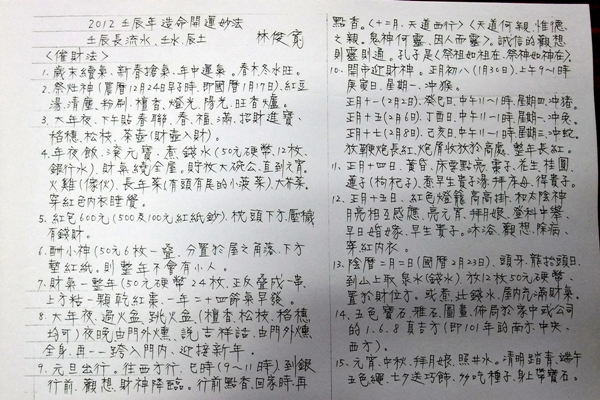 2012壬辰年造命開運妙法
壬辰長流水、壬水、辰土 林俊寬
<催財法>
1. 歲末續氣、新春搶氣、年中運氣。春木冬水旺。
2. 祭灶神(農曆12月24日早子時,即國曆1月17日)、紅豆
湯、清塵、粉刷、檀香、燈光、陽光、旺香爐。
3. 大年夜、下午貼春聯、春、福、滿、招財進寶、
格穗、松枝、茶壺(財壺入財)。
4. 年夜飯、湊元寶、煮錢水(50元硬幣、12枚、
銀行水)、財氣繞全屋。貯放大碗公、直到元宵。
火雞(傢伙)、長年菜(有頭有尾的小菠菜)、大芥菜。
穿紅色內衣睡覺。
5. 紅包600元(500及100元紅紙鈔)、枕頭下方,壓穢
有錢財。
6. 酬小神(50元6枚一疊、分置於屋之角落、下方
墊紅紙。則整年不會有小人。
7. 財氣一整年(50元硬幣24枚、正反疊成一串、
上方粘一顆乾紅棗、一年二十四節氣早發。
8. 大年夜、過火盆、跳火盆(檀香、松枝、榕穗
均可)夜晚由門外燻、說吉祥話、由門外燻
全身、再一一跨入門內、迎接新年。
9. 元旦出行。往西方行、巳時(9~11時)、到銀
行前、觀想、財神降臨。行前點香、回家時、再
點香。<十二月、天道西行><天道何親、惟德
之親。鬼神何靈、因人而靈>。誠信的觀想
則靈則通。孔子是<祭祖如祖在、祭神如神在>。
10. 開市迎財神。正月初八(1月30日)、上午9~11時
庚寅日、星期一、沖猴。
正月十一(2月2日)、癸巳日、中午11~1時、星期四、沖猪。
正月十五(2月6日)、丁酉日、中午11~1時、星期一、沖兔。
正月十七(2月8日)、己亥日、中午11~1時、星期三、沖蛇。
放鞭炮長紅、炮屑收放於高處、整年長紅。
11. 正月十四日、黃昏、床要點亮。棗子、花生、桂圓、
蓮子(枸杞子)、煮早生貴子湯、拜床母、得貴子。
12. 正月十五日、紅色燈籠高高掛、和太陰神
月亮相互感應、亮元宵、拜月娘、登科中舉、
早日婚嫁、早生貴子。沐浴、觀想、除病、
穿紅內衣、。
13. 陰曆二月二日(國曆2月23日)、頭牙、龍抬頭日、
到山上取泉水(錢水)、放12枚50元硬幣、
置於財位方。或煮、此錢水、屋內充滿財氣。
14. 五色寶石、雅石、圖畫、佈局於家中或公司
的1.6.8真吉方(即101年的南方、中央、
西方)。
15. 元宵、中秋、拜月娘、照井水。清明踏青、端午
五色繩、七夕送巧飾、多吃種子、身上帶寶石。